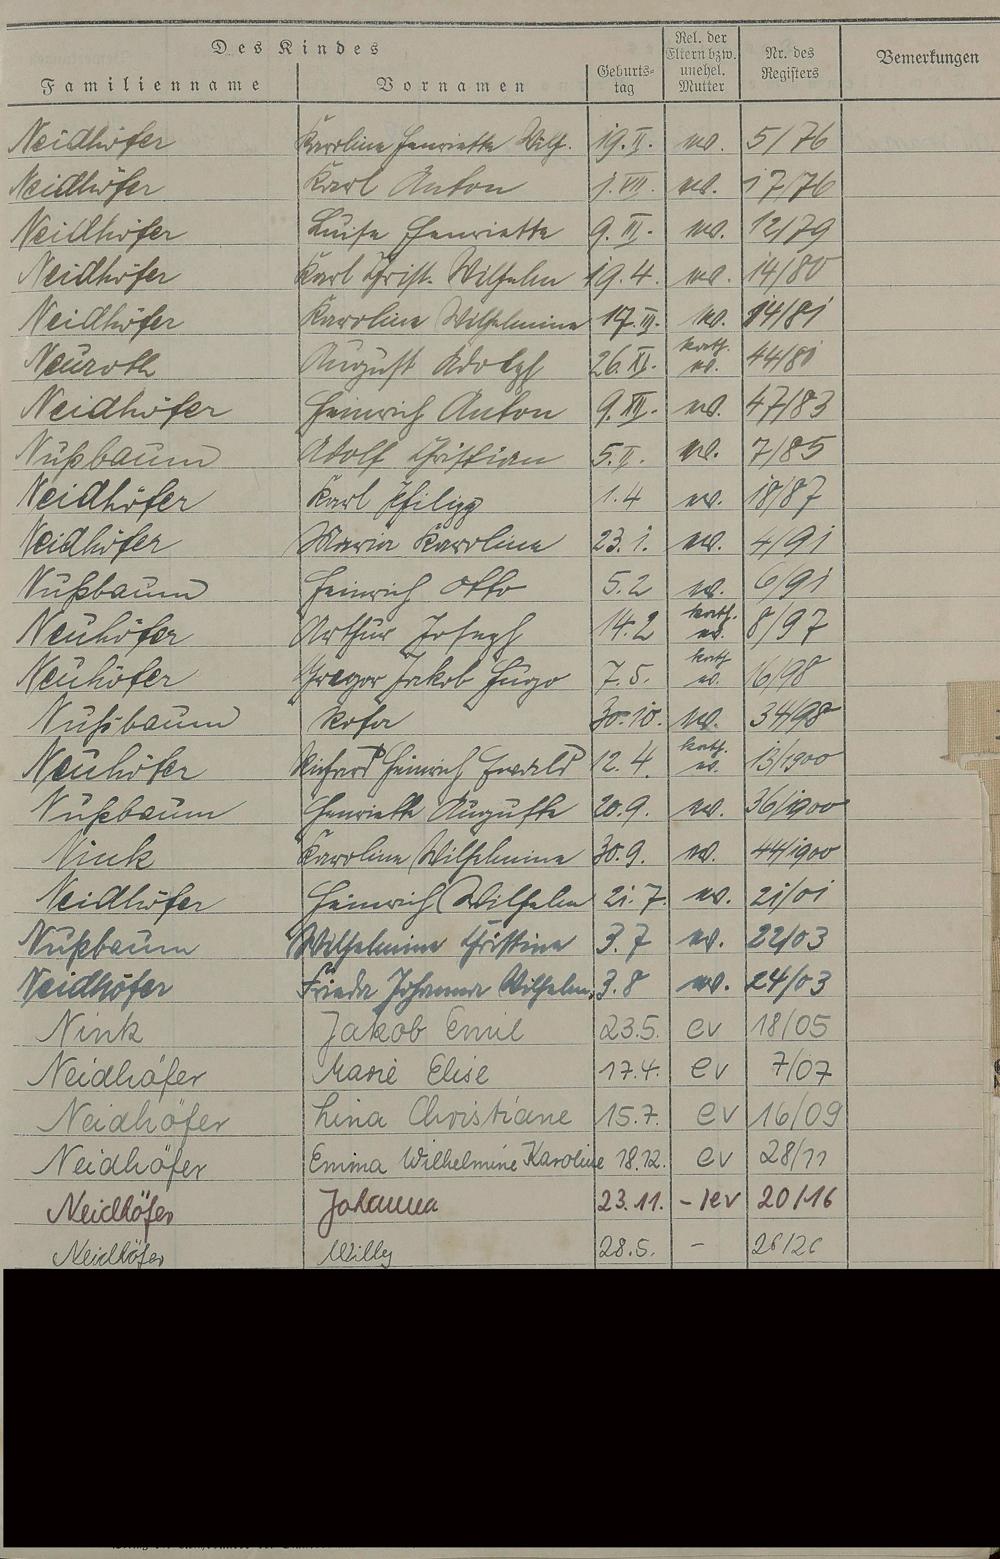 Des Kindes
Familienname Vornamen Geburts-tag Rel. der Eltern bzw. unehel. Mutter Nr. des Registers Bemerkungen
Neidhöfer Karoline Henriette Wilh. 19.II. ev. 5/76
Neidhöfer Karl Anton 1.VII. ev. 17/76
Neidhöfer Luise Henriette 9.III. ev. 12/79
Neidhöfer Karl Christ. Wilhelm 19.4. ev. 14/80
Neidhöfer Karoline Wilhelmine 17.III. ev. 14/81
Neuroth August Adolph 26.XI. kath. ev. 44/81
Neidhöfer Heinrich Anton 9.XII. ev. 47/83
Nußbaum Adolf Christian 5.II. ev. 7/85
Neidhöfer Karl Philipp 1.4 ev. 18/87
Neidhöfer Maria Karoline 23.1. ev. 4/91
Nußbaum Heinrich Otto 5.2 ev. 6/91
Neuhöfer Arthur Joseph 14.2 kath. ev. 8/97
Neuhöfer Gregor Jakob Hugo 7.5. kath. ev. 16/98
Nußbaum Rosa 30.10. ev. 34/98
Neuhöfer Richard Heinrich Ewald 12.4. kath. ev. 13/1900
Nußbaum Henriette Auguste 20.9. ev. 36/1900
Nink Karoline Wilhelmine 30.9. ev. 44/1900
Neidhöfer Heinrich Wilhelm 21.7. ev. 21/01
Nußbaum Wilhelmine Christine 3.7 ev. 22/03
Neidhöfer Frieda Johanna Wilhelm. 3.8 ev. 24/03
Nink Jakob Emil 23.5. ev 18/05
Neidhöfer Marie Elise 17.4. ev 7/07
Neidhöfer Lina Christiane 15.7. ev 16/09
Neidhöfer Emma Wilhelmine Karoline 18.12. ev 28/11
Neidhöfer Johanna 23.11. -/ev 20/16
Neidhöfer Willy 28.5. - 26/26